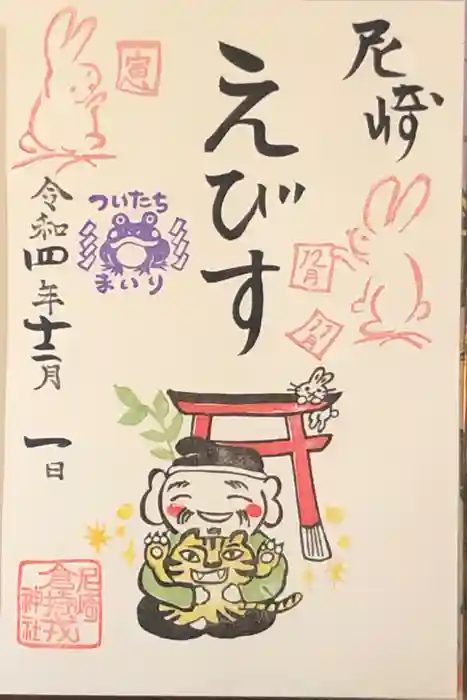 尼崎
えびす
12月
11月
ついたち
まいり
令和四年十二月一日
尼崎
神社